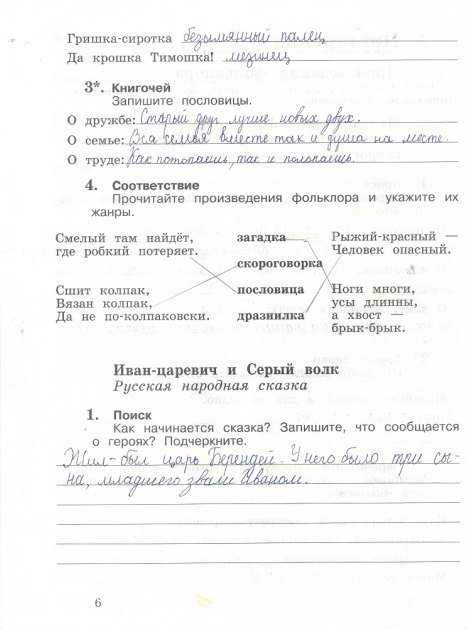 Гришка-сиротка безымянный палец
Да крошка Тимошка! мизинец
3*. Книгочей
Запишите пословицы.
О дружбе: Старый друг лучше новых двух.
О семье: Вся семья вместе так и душа на месте.
О труде: Как потопаешь, так и полопаешь.
4. Соответствие
Прочитайте произведения фольклора и укажите их
жанры.
Смелый там найдёт,
где робкий потеряет.
Сшит колпак,
Вязан колпак,
Да не по-колпаковски.
загадка
скороговорка
пословица
дразнилка
Рыжий-красный —
Человек опасный.
Ноги многи,
усы длинны,
а хвост —
брык-брык.
Иван-царевич и Серый волк
Русская народная сказка
1. Поиск
Как начинается сказка? Запишите, что сообщается
о героях? Подчеркните.
Жил-был царь Берендей. У него было три сы-
на, младшего звали Иваном.
6